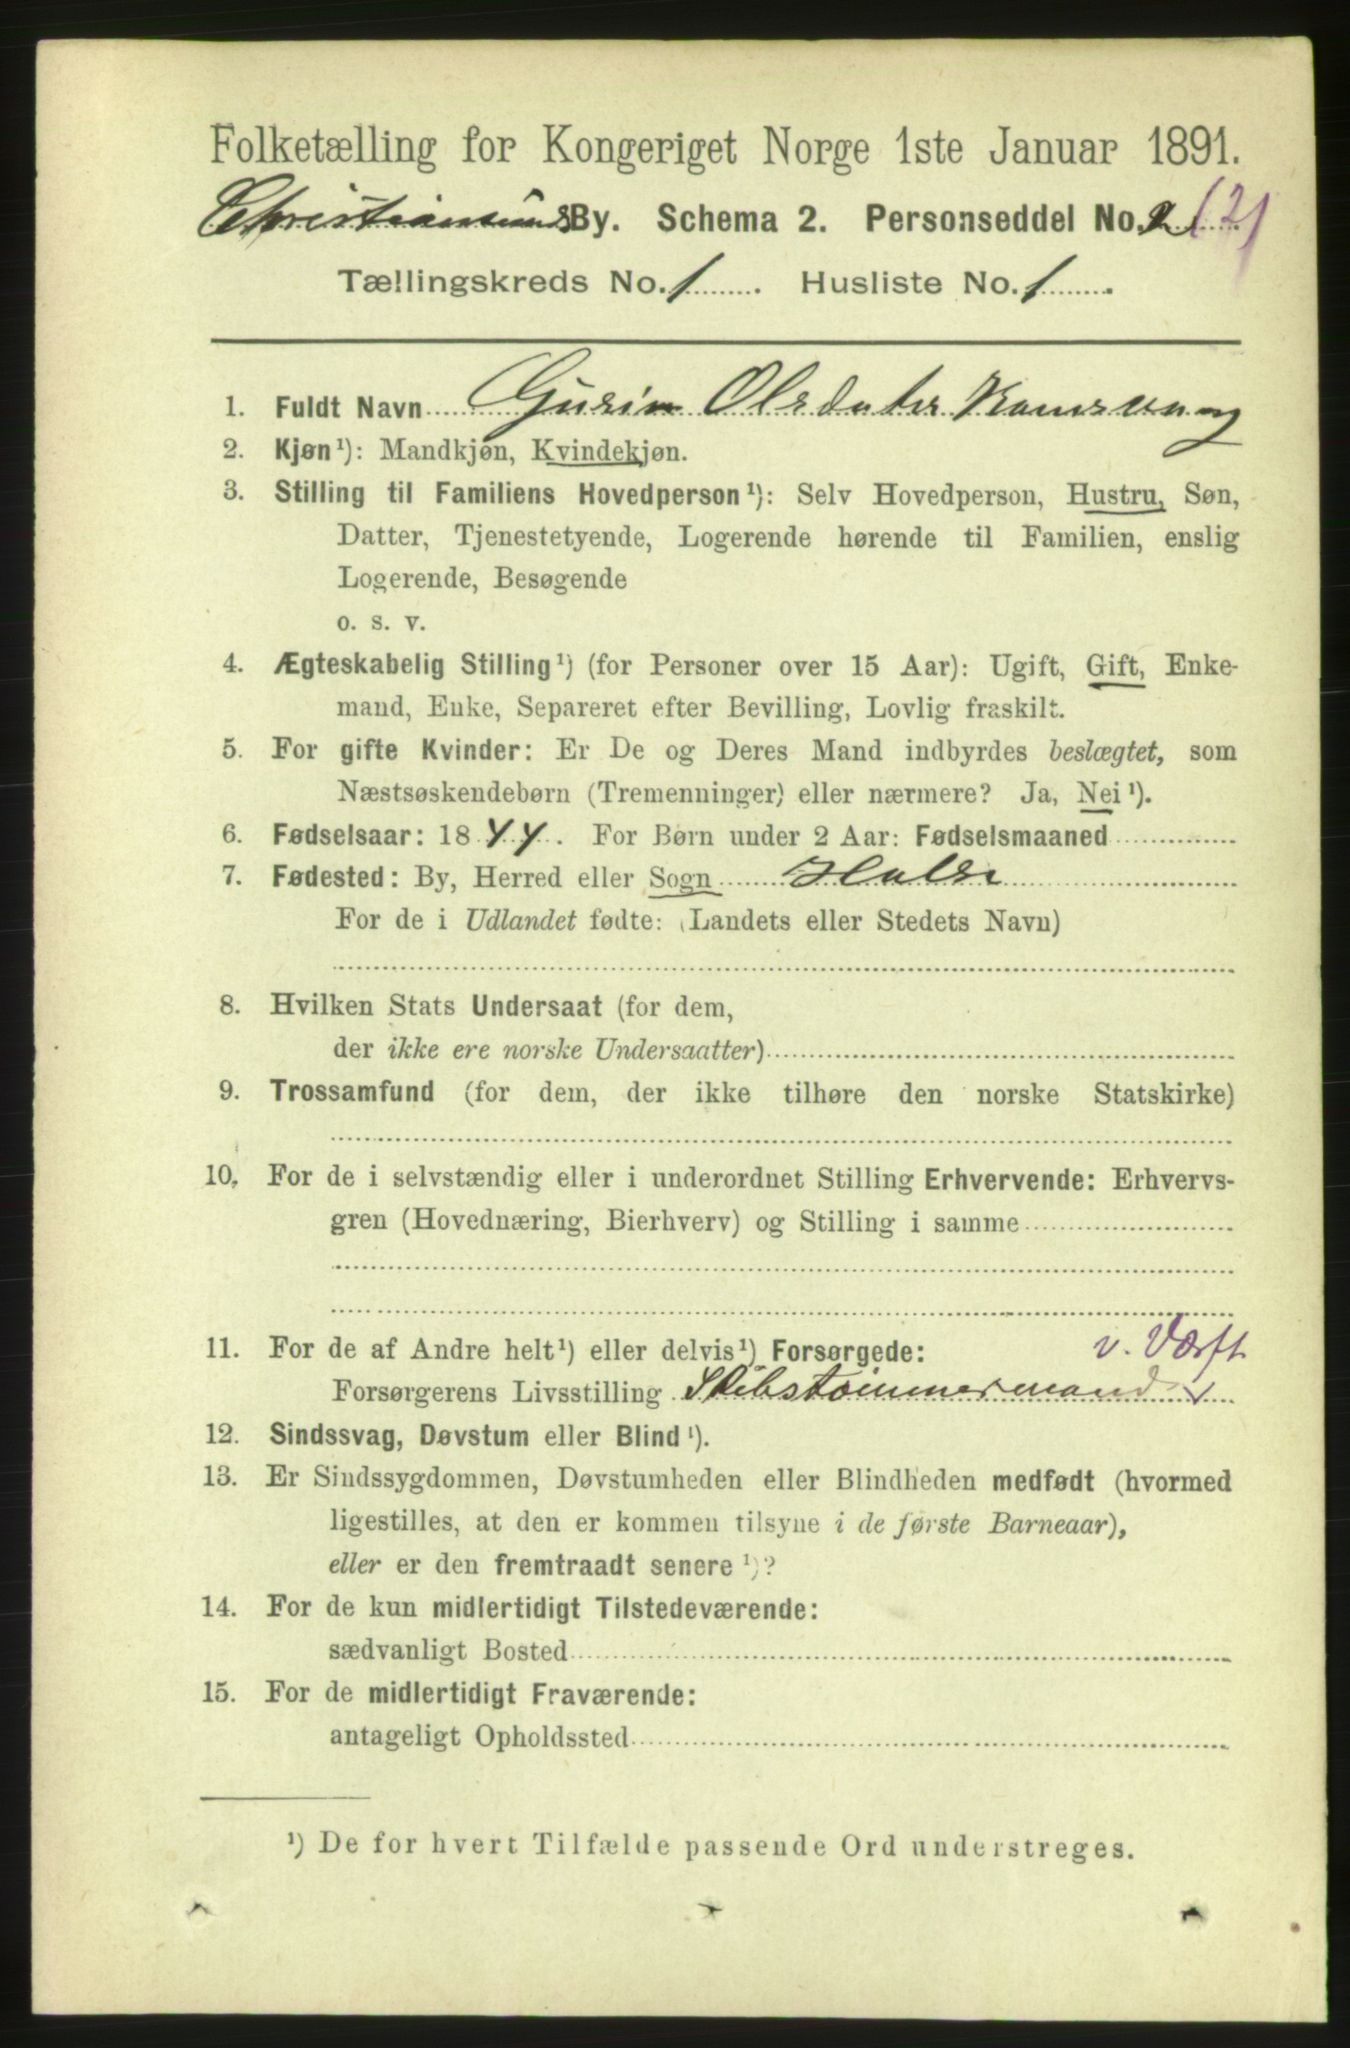 Folketælling for Kongeriget Norge 1ste Januar 1891.
Christiansunds By. Schema 2. Personseddel No. 2 (2)
Tællingskreds No. 1. Husliste No. 1.
1. Fuldt Navn Olsdater
2. Kjøn¹): Mandkjøn, Kvindekjøn.
3. Stilling til Familiens Hovedperson¹): Selv Hovedperson, Hustru, Søn,
Datter, Tjenestetyende, Logerende hørende til Familien, enslig
Logerende, Besøgende
o. s. v.
4. Ægteskabelig Stilling¹) (for Personer over 15 Aar): Ugift, Gift, Enke-
mand, Enke, Separeret efter Bevilling, Lovlig fraskilt.
5. For gifte Kvinder: Er De og Deres Mand indbyrdes beslægtet, som
Næstsøskendebørn (Tremenninger) eller nærmere? Ja, Nei¹).
6. Fødselsaar: 1844. For Børn under 2 Aar: Fødselsmaaned
7. Fødested: By, Herred eller Sogn Halse
For de i Udlandet fødte: (Landets eller Stedets Navn)
8. Hvilken Stats Undersaat (for dem,
der ikke ere norske Undersaatter)
9. Trossamfund (for dem, der ikke tilhøre den norske Statskirke)
10. For de i selvstændig eller i underordnet Stilling Erhvervende: Erhvervs-
gren (Hovednæring, Bierhverv) og Stilling i samme
11. For de af Andre helt¹) eller delvis¹) Forsørgede: v. Værft
Forsørgerens Livsstilling Skibstømmermand
12. Sindssvag, Døvstum eller Blind¹).
13. Er Sindssygdommen, Døvstumheden eller Blindheden medfødt (hvormed
ligestilles, at den er kommen tilsyne i de første Barneaar),
eller er den fremtraadt senere¹)?
14. For de kun midlertidigt Tilstedeværende:
sædvanligt Bosted
15. For de midlertidigt Fraværende:
antageligt Opholdssted
¹) De for hvert Tilfælde passende Ord understreges.